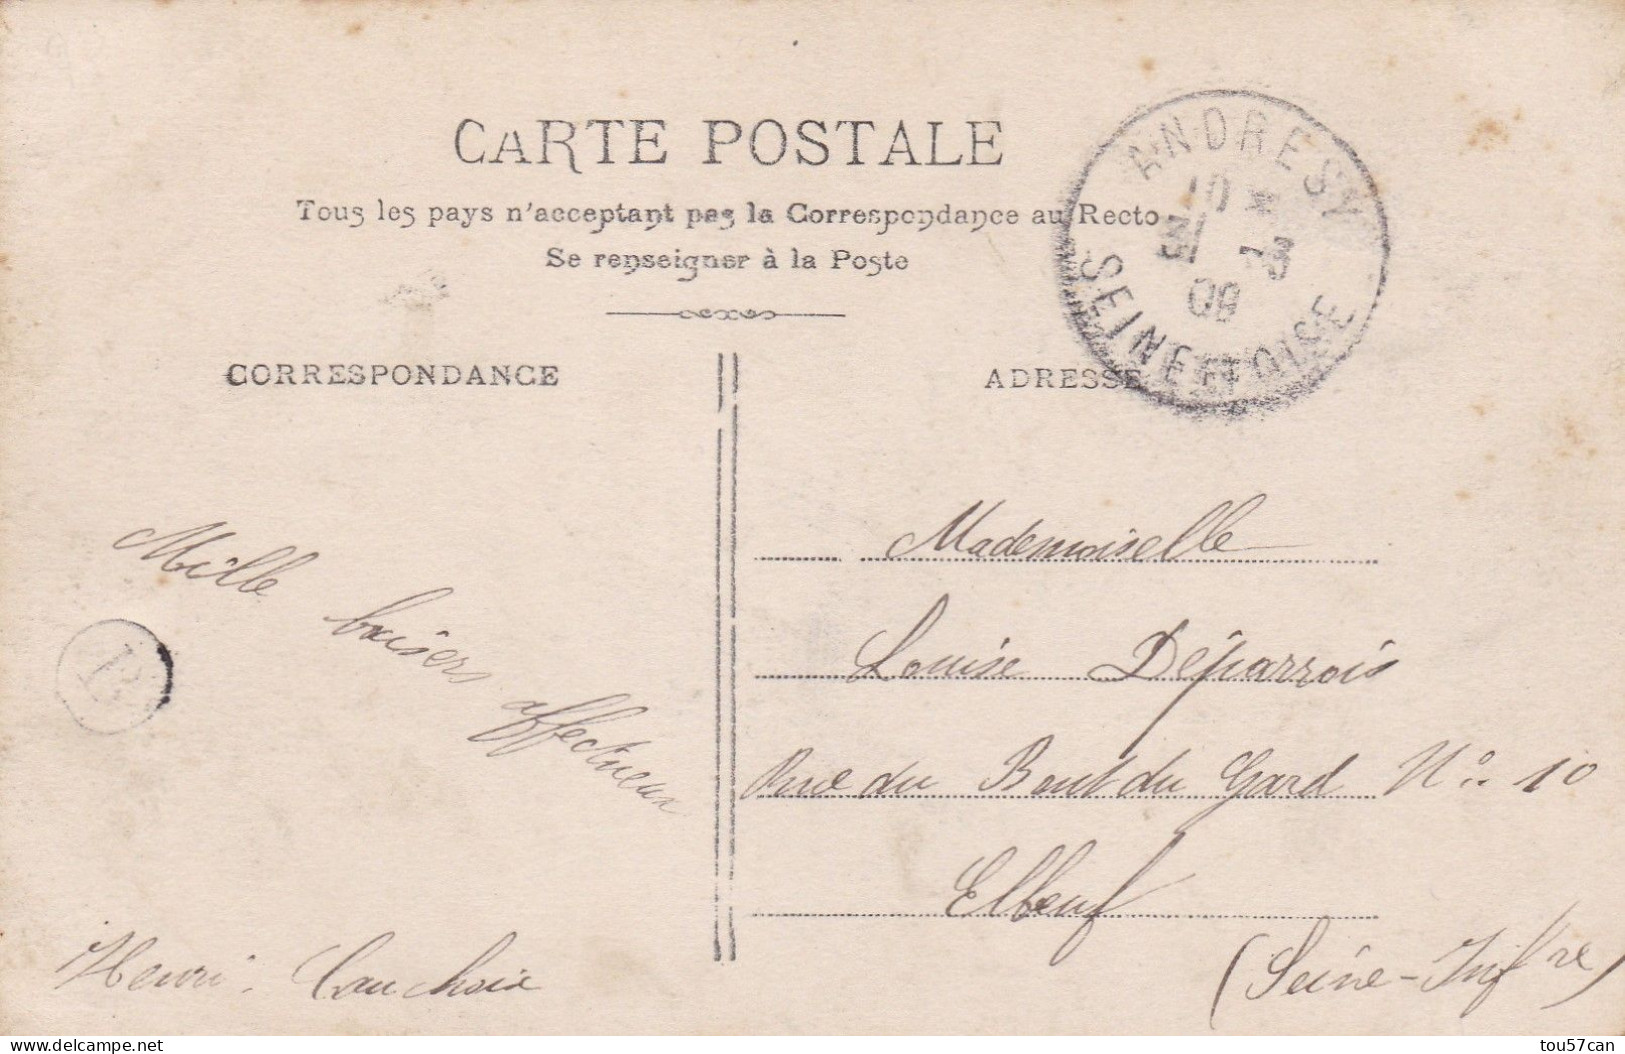 CARTE POSTALE
Tous les pays n'acceptant pas la Correspondance au Recto
Se renseigner à la Poste
CORRESPONDANCE
ADRESSE
ANDRESY
SEINE ET OISE
08
Mille baisers affectueux
Henri Cauchoix
B
Mademoiselle
Louise Déparrois
Rue du Bout du Gard N° 10
Elbeuf
(Seine-Infre)
delcampe.net
tou57can